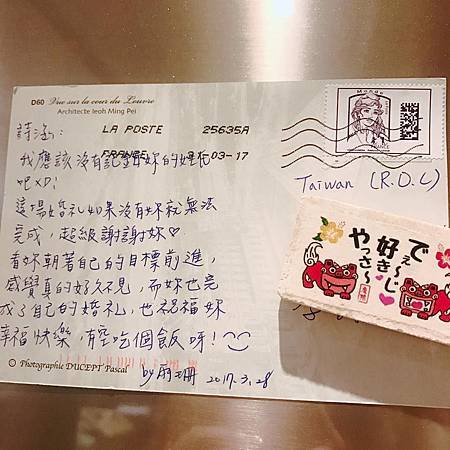 D60 Vue sur la cour du Louvre
Architecte Ieoh Ming Pei
LA POSTE 25635A
FRANCE 03-17
Monde
詩涵:
我應該沒有記錯妳的姓吧XD!
這場婚禮如果沒有妳就無法
完成,超級謝謝妳♡
看妳朝著自己的目標前進,
感覺真的好久不見,而妳也完
成了自己的婚禮,也祝福妳
幸福快樂,有空吃個飯呀!
by 2017.3.28
Taiwan (R.O.C)
で
好ぇ~じ
やっさ~
© Photographie DUCEPT Pascal